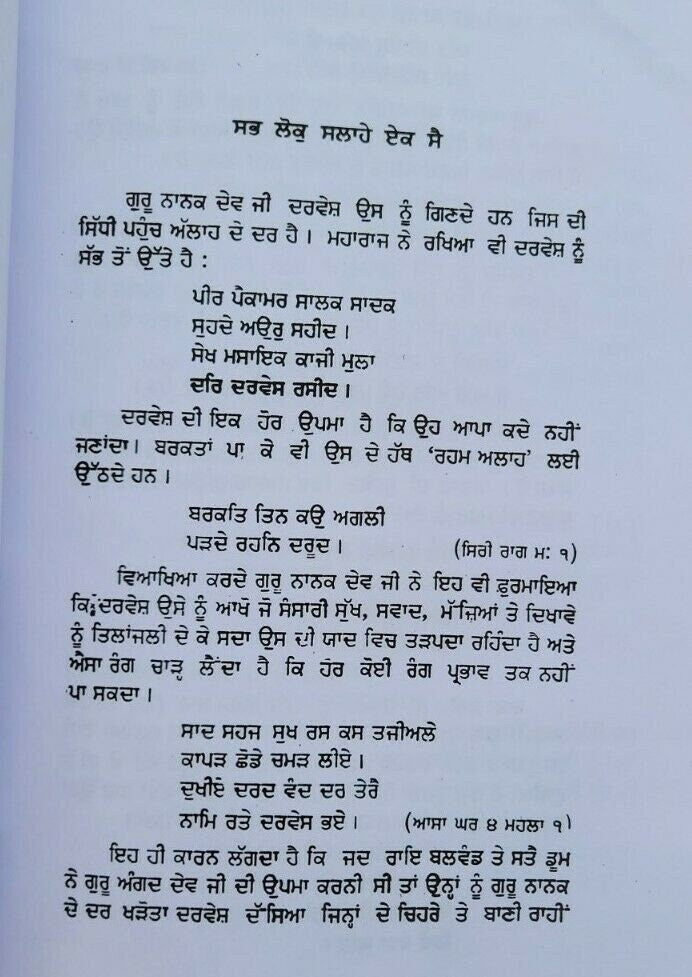 ਸਭ ਲੋਕੁ ਸਲਾਹੇ ਏਕ ਸੈ
ਗੁਰੂ ਨਾਨਕ ਦੇਵ ਜੀ ਦਰਵੇਸ਼ ਉਸ ਨੂੰ ਗਿਣਦੇ ਹਨ ਜਿਸ ਦੀ
ਸਿੱਧੀ ਪਹੁੰਚ ਅੱਲਾਹ ਦੇ ਦਰ ਹੈ। ਮਹਾਰਾਜ ਨੇ ਰਖਿਆ ਵੀ ਦਰਵੇਸ਼ ਨੂੰ
ਸੱਭ ਤੋਂ ਉੱਤੇ ਹੈ :
ਪੀਰ ਪੈਕਾਮਰ ਸਾਲਕ ਸਾਦਕ
ਸੁਹਦੇ ਅਉਰੁ ਸਹੀਦ।
ਸੇਖ ਮਸਾਇਕ ਕਾਜੀ ਮੁਲਾ
ਦਰਿ ਦਰਵੇਸ ਰਸੀਦ।
ਦਰਵੇਸ਼ ਦੀ ਇਕ ਹੋਰ ਉਪਮਾ ਹੈ ਕਿ ਉਹ ਆਪਾ ਕਦੇ ਨਹੀਂ
ਜਣਾਂਦਾ। ਬਰਕਤਾਂ ਪਾ ਕੇ ਵੀ ਉਸ ਦੇ ਹੱਥ ‘ਰਹਮ ਅਲਾਹ’ ਲਈ
ਉੱਠਦੇ ਹਨ।
ਬਰਕਤਿ ਤਿਨ ਕਉ ਅਗਲੀ
ਪੜਦੇ ਰਹਨਿ ਦਰੂਦ। (ਸਿਰੀ ਰਾਗ ਮ: ੧)
ਵਿਆਖਿਆ ਕਰਦੇ ਗੁਰੂ ਨਾਨਕ ਦੇਵ ਜੀ ਨੇ ਇਹ ਵੀ ਫ਼ੁਰਮਾਇਆ
ਕਿ ਦਰਵੇਸ਼ ਉਸੇ ਨੂੰ ਆਖੋ ਜੋ ਸੰਸਾਰੀ ਸੁੱਖ, ਸਵਾਦ, ਮੱਜ਼ਿਆਂ ਤੇ ਦਿਖਾਵੇ
ਨੂੰ ਤਿਲਾਂਜਲੀ ਦੇ ਕੇ ਸਦਾ ਉਸ ਦੀ ਯਾਦ ਵਿਚ ਤੜਪਦਾ ਰਹਿੰਦਾ ਹੈ ਅਤੇ
ਐਸਾ ਰੰਗ ਚਾੜ੍ਹ ਲੈਂਦਾ ਹੈ ਕਿ ਹੋਰ ਕੋਈ ਰੰਗ ਪ੍ਰਭਾਵ ਤਕ ਨਹੀਂ
ਪਾ ਸਕਦਾ।
ਸਾਦ ਸਹਜ ਸੁਖ ਰਸ ਕਸ ਤਜੀਅਲੇ
ਕਾਪੜ ਛੋਡੇ ਚਮੜ ਲੀਏ।
ਦੁਖੀਏ ਦਰਦ ਵੰਦ ਦਰ ਤੇਰੈ
ਨਾਮਿ ਰਤੇ ਦਰਵੇਸ ਭਏ। (ਆਸਾ ਘਰ ੪ ਮਹਲਾ ੧)
ਇਹ ਹੀ ਕਾਰਨ ਲੱਗਦਾ ਹੈ ਕਿ ਜਦ ਰਾਇ ਬਲਵੰਡ ਤੇ ਸਤੈ ਡੂਮ
ਨੇ ਗੁਰੂ ਅੰਗਦ ਦੇਵ ਜੀ ਦੀ ਉਪਮਾ ਕਰਨੀ ਸੀ ਤਾਂ ਉਨ੍ਹਾਂ ਨੂੰ ਗੁਰੂ ਨਾਨਕ
ਦੇ ਦਰ ਖੜੋਤਾ ਦਰਵੇਸ਼ ਦੱਸਿਆ ਜਿਨ੍ਹਾਂ ਦੇ ਚਿਹਰੇ ਤੇ ਬਾਣੀ ਰਾਹੀਂ